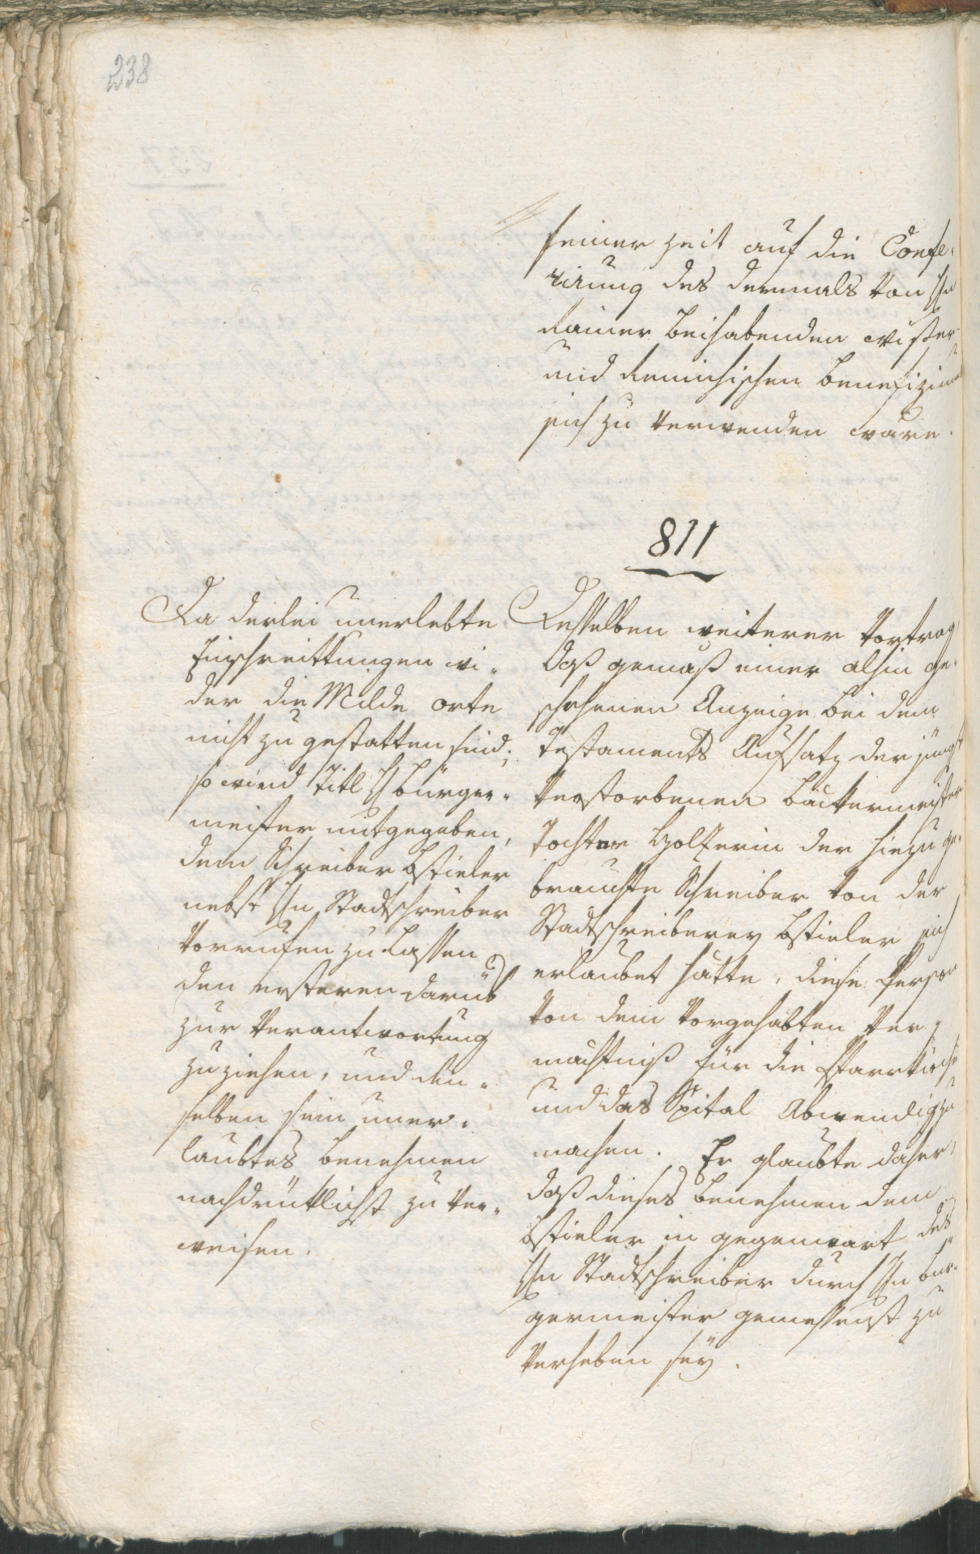 238
seiner Zeit auf die Confe-
rirung des dermals von Hn
Rainer beihabenden
und benefizium
sich zu verwenden wäre.
811
Da derlei unerlebte
Einschreittungen wi-
der die Milde orte
nicht zu gestatten sind;
so wird Titl H Bürger-
meister mitgegeben,
dem Schreiber Ostieler
nebst Hn Stadtschreiber
Vorrufen zu lassen
den ersteren darüb
zur Verantwortung
zuziehen, und den-
selben sein uner-
laubtes benehmen
nachdrüklichst zu ver-
weisen.
Desselben weiterer Vortrag
daß gemäß einer alhin ge-
schehenen Anzeige bei dem
Testaments Aufsatz der jüngst
verstorbenen bäckermeister
Tochter Holzerin der hiezu ge-
brauchte Schreiber von der
Stadtschreiberey Ostieler sich
erlaubet hätte, diese Person
von dem Vorgehabten Ver-
mächtniß für die Pfarrkirche
und das Spital Abwendig zu
machen. Er glaubte daher
daß dieses Benehmen dem
Ostieler in gegenwart des
Hn Stadtschreiber durch Hn bur-
germeister gemessenst zu
verheben sey.